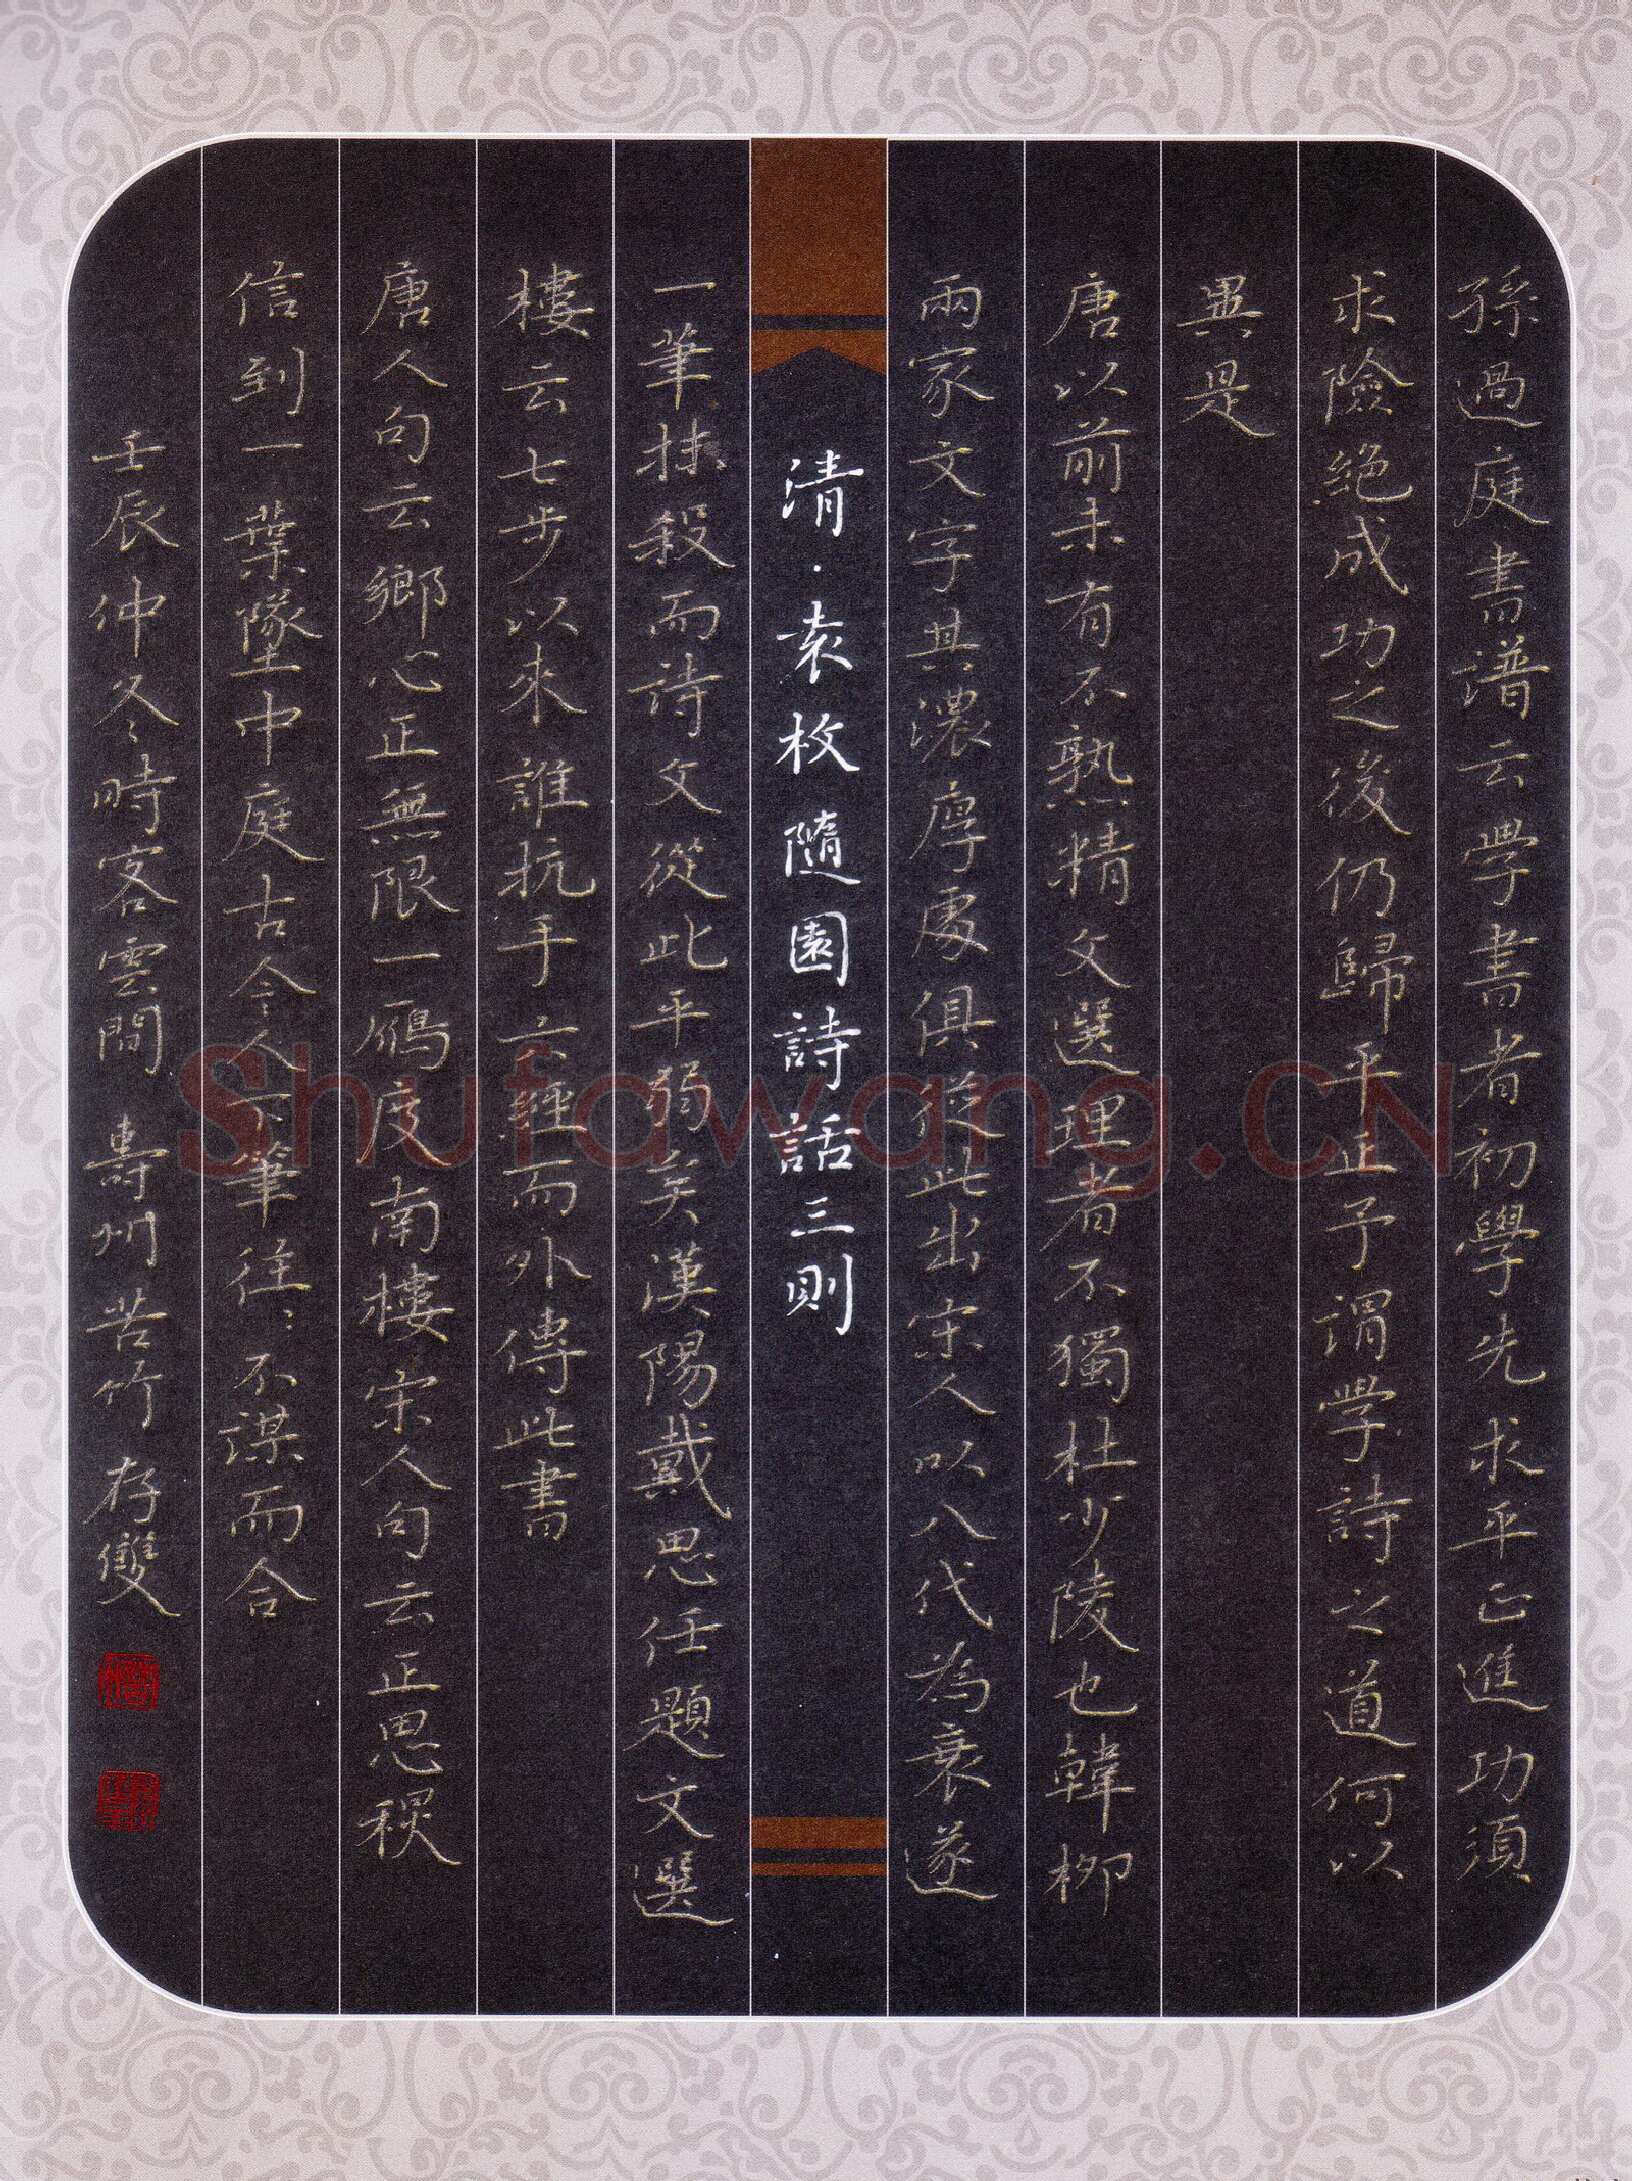 孫過庭書譜云學書者初學先求平正進功須
求險絕成功之後仍歸平正予謂學詩之道何以
異是
唐以前未有不熟精文選理者不獨杜少陵也韓柳
兩家文字其濃厚處俱從此出宋人以八代為衰遂
清·袁枚隨園詩話三則
一筆抹殺而詩文從此平弱矣漢陽戴思任題文選
樓云七步以來誰抗手六經而外傳此書
唐人句云鄉心正無限一鴈度南樓宋人句云正思秋
信到一葉墜中庭古今人下筆往:不謀而合
壬辰仲冬時客雲間 壽州苦竹 存雙
Shufawang.CN